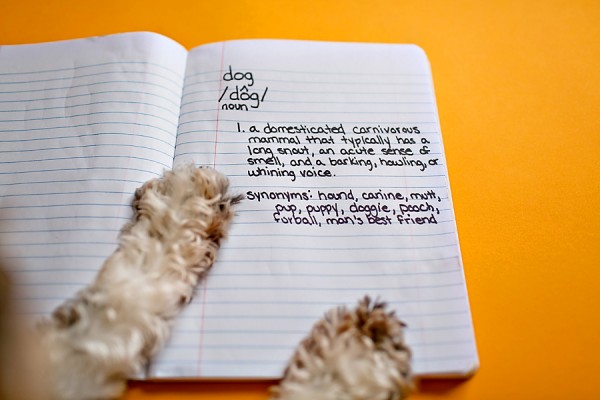 dog
/dôg/
noun
1. a domesticated carnivorous
mammal that typically has a
long snout, an acute sense of
smell, and a barking, howling, or
whining voice.
synonyms: hound, canine, mutt,
pup, puppy, doggie, pooch,
furball, man's best friend